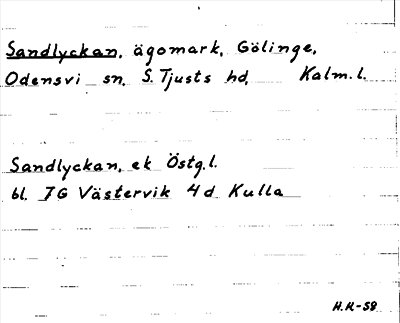 Sandlyckan, ägomark, Gölinge,
Odensvi sn, S. Tjusts hd, Kalm. l.
Sandlyckan, ek Östg. l.
bl. 7G Västervik 4d Kulla
H.K-58